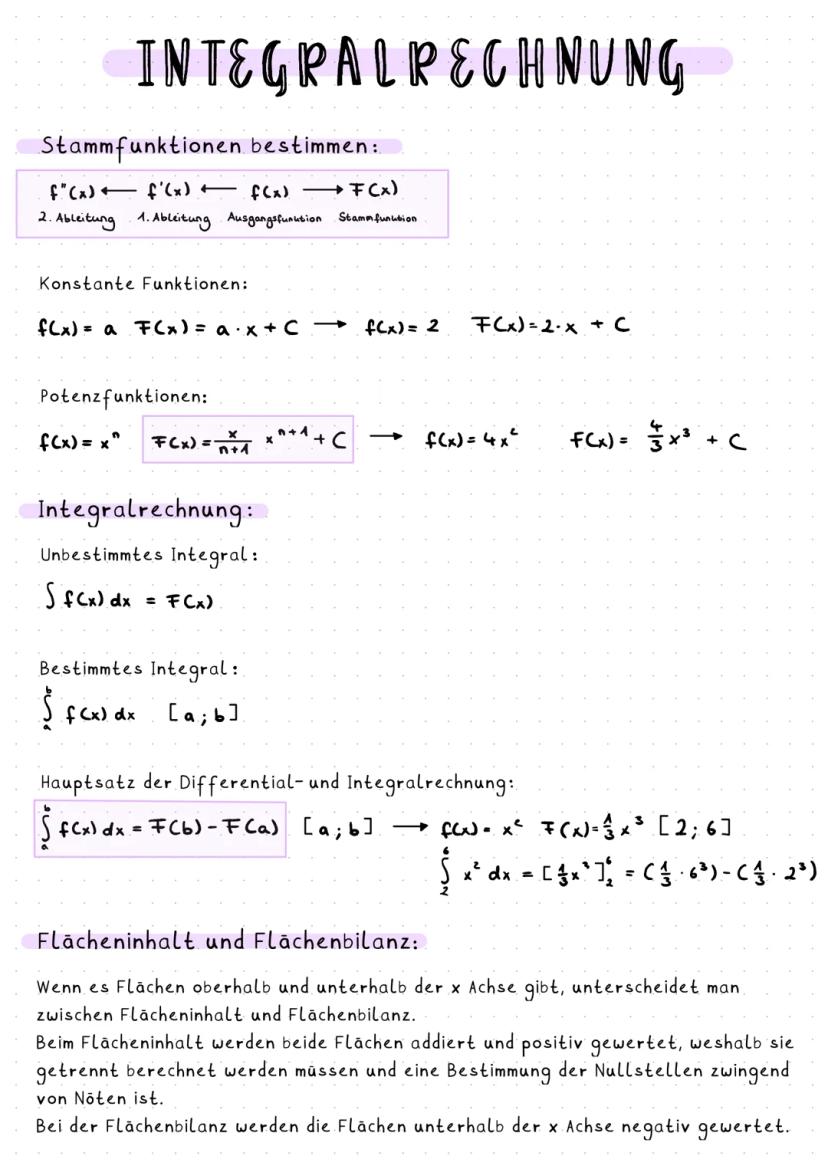 INTEGRALRECHNUNG
Stammfunktionen bestimmen:
f"(x) ← f'(x) ← f(x) → F(x)
2. Ableitung 1. Ableitung Ausgangsfunktion Stammfunktion
Konstante Funktionen:
f(x) = a F(x) = a · x + C → f(x) = 2 F(x) = 2 · x + C
Potenzfunktionen:
f(x) = xⁿ F(x) = x/n+1 xⁿ⁺¹ + C → f(x) = 4x² F(x) = 4/3 x³ + C
Integralrechnung:
Unbestimmtes Integral:
∫ f(x) dx = F(x)
Bestimmtes Integral:
∫ₐᵇ f(x) dx [a ; b]
Hauptsatz der Differential- und Integralrechnung:
∫ₐᵇ f(x) dx = F(b) - F(a) [a ; b] → f(x) = x² F(x) = 1/3 x³ [2 ; 6]
∫₂⁶ x² dx = [1/3 x³]₂⁶ = (1/3 · 6³) - (1/3 · 2³)
Flächeninhalt und Flächenbilanz:
Wenn es Flächen oberhalb und unterhalb der x Achse gibt, unterscheidet man
zwischen Flächeninhalt und Flächenbilanz.
Beim Flächeninhalt werden beide Flächen addiert und positiv gewertet, weshalb sie
getrennt berechnet werden müssen und eine Bestimmung der Nullstellen zwingend
von Nöten ist.
Bei der Flächenbilanz werden die Flächen unterhalb der x Achse negativ gewertet.